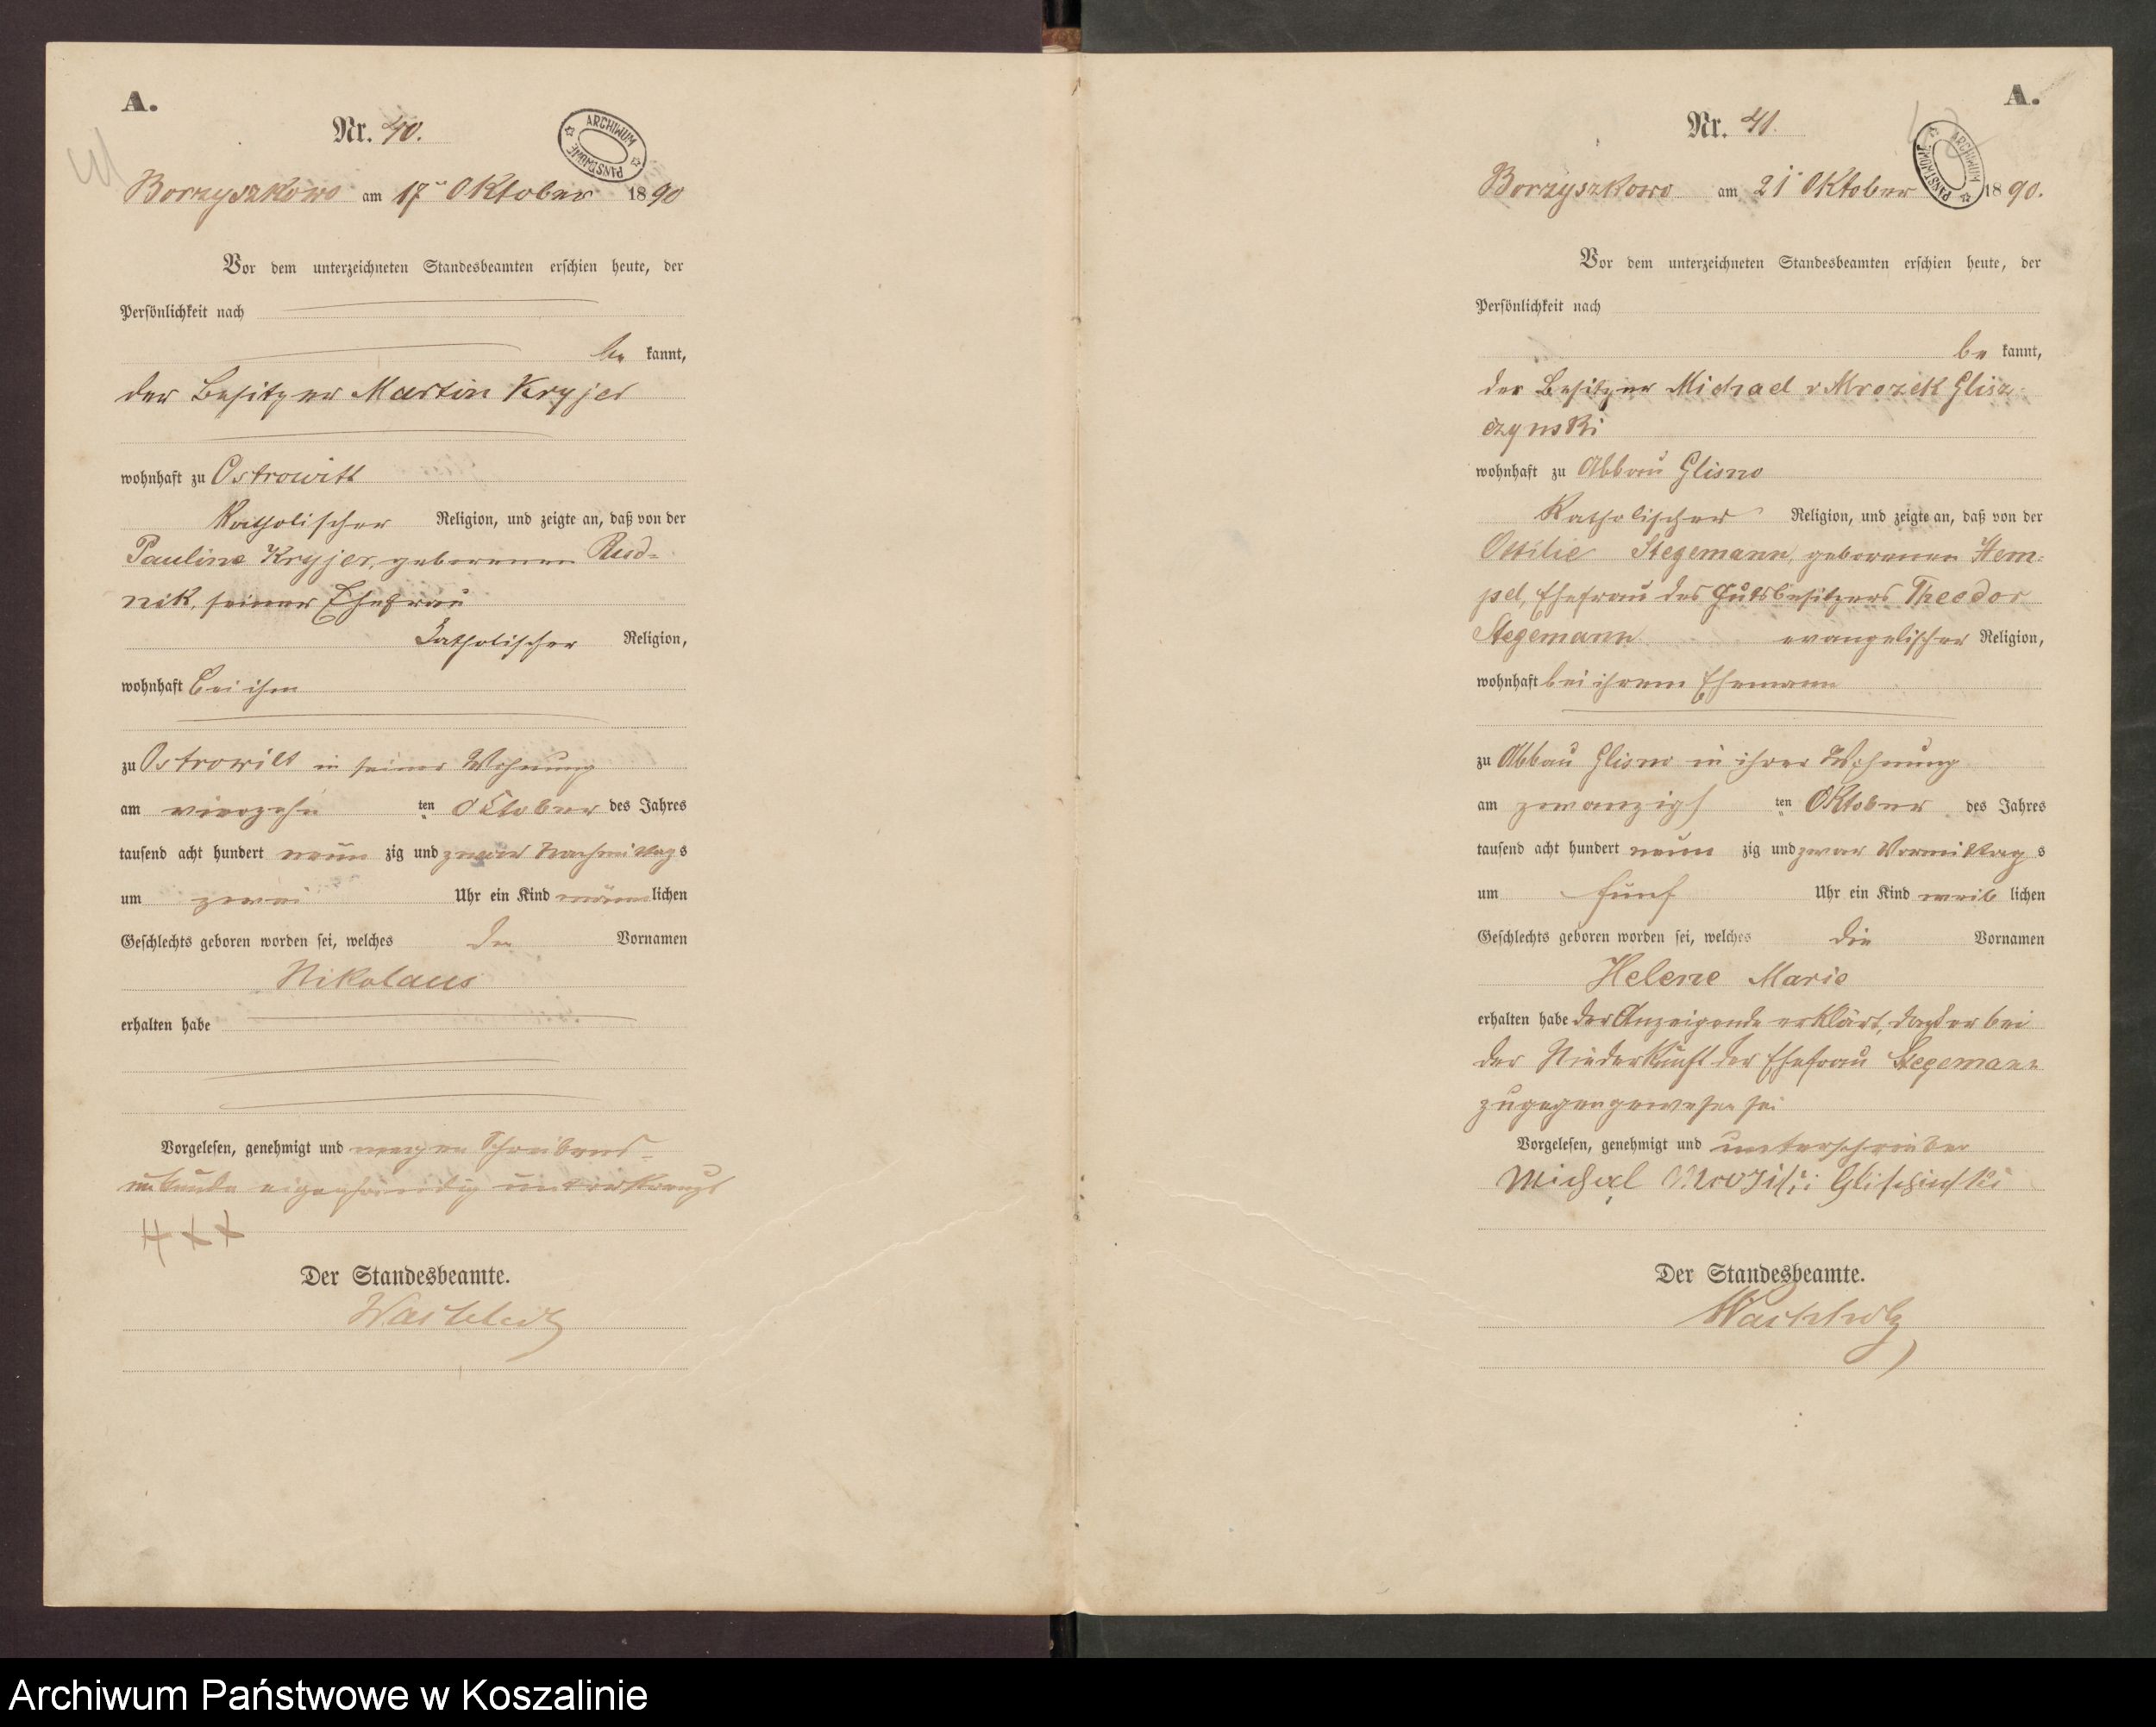 A.
Nr. 40.
ARCHIWUM PAŃSTWOWE
Borzyszkowo am 17ten Oktober 1890
Vor dem unterzeichneten Standesbeamten erschien heute, der
Persönlichkeit nach
be kannt,
der Besitzer Martin Kryjer
wohnhaft zu Ostrowitt
Katholischer Religion, und zeigte an, daß von der
Pauline Kryjer, geborenen Rud=
nik, seiner Ehefrau
Katholischer Religion,
wohnhaft bei ihm
zu Ostrowitt in seiner Wohnung
am vierzehn ten Oktober des Jahres
tausend acht hundert neun zig und zwar Nachmittags
um zwei Uhr ein Kind männlichen
Geschlechts geboren worden sei, welches den Vornamen
Nikolaus
erhalten habe
Vorgelesen, genehmigt und wegen Schreibens=
unkunde eigenhändig unterkreuzt
+++
Der Standesbeamte.
A.
Nr. 41.
ARCHIWUM PAŃSTWOWE
Borzyszkowo am 21. Oktober 1890.
Vor dem unterzeichneten Standesbeamten erschien heute, der
Persönlichkeit nach
be kannt,
der Besitzer Michael v Mrozek Glisz-
czynski
wohnhaft zu Abbau Glisno
Katholischer Religion, und zeigte an, daß von der
Ottilie Stegemann, geborenen Hem-
pel, Ehefrau des Gutsbesitzers Theodor
Stegemann evangelischer Religion,
wohnhaft bei ihrem Ehemann
zu Abbau Glisno in ihrer Wohnung
am zwanzigs ten Oktober des Jahres
tausend acht hundert neun zig und zwar Vormittags
um fünf Uhr ein Kind weib lichen
Geschlechts geboren worden sei, welches die Vornamen
Helene Marie
erhalten habe der Anzeigende erklärt, daß er bei
der Niederkunft der Ehefrau Stegemann
zugegen gewesen sei
Vorgelesen, genehmigt und unterschrieben
Michael
Der Standesbeamte.
Archiwum Państwowe w Koszalinie